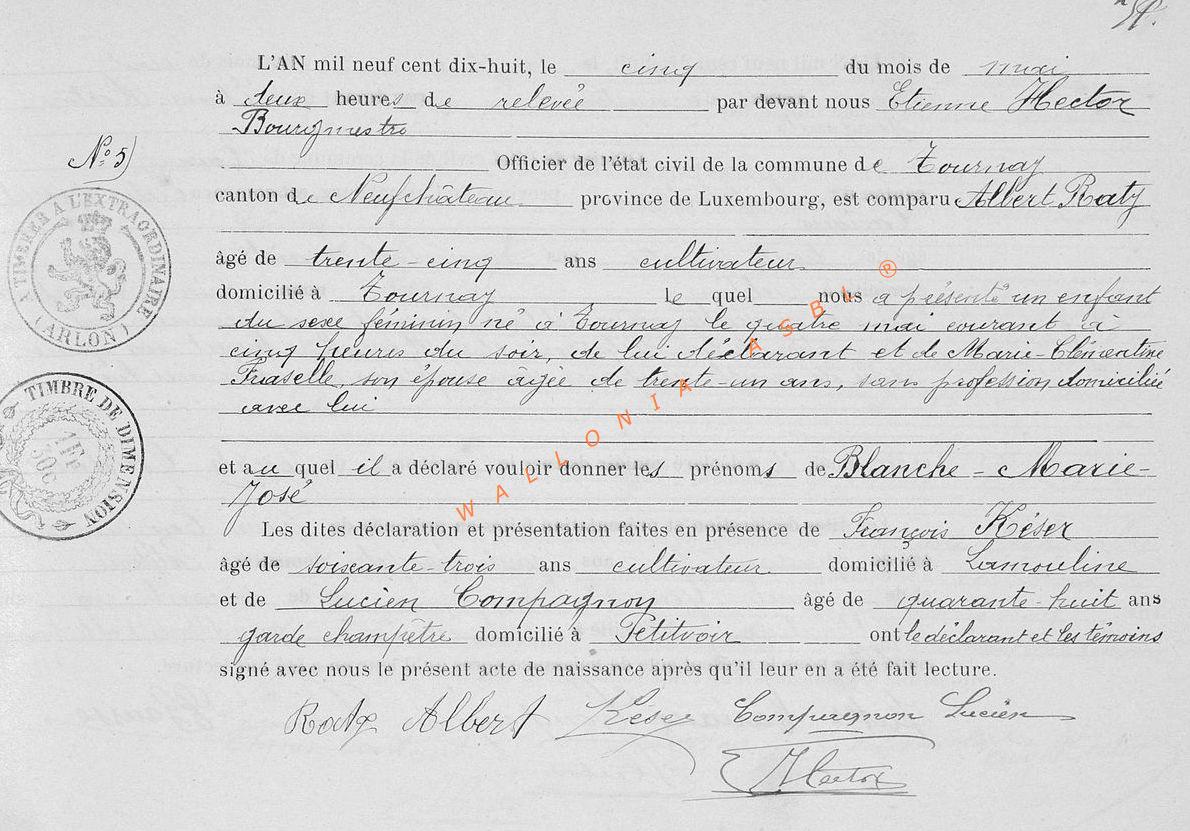 L'AN mil neuf cent dix-huit, le cinq du mois de mai
à deux heures de relevée par devant nous Etienne Hector
Bourgmestre
N° 5) Officier de l'état civil de la commune de Tournay
canton de Neufchâteau province de Luxembourg, est comparu Albert Raty
âgé de trente-cinq ans cultivateur
domicilié à Tournay le quel nous a présenté un enfant
du sexe féminin né à Tournay le quatre mai courant à
cinq heures du soir, de lui déclarant et de Marie-Clémentine
Fraselle, son épouse âgée de trente-un ans, sans profession domiciliée
avec lui
et au quel il a déclaré vouloir donner les prénoms de Blanche-Marie-
José
Les dites déclaration et présentation faites en présence de François Késer
âgé de soixante-trois ans cultivateur domicilié à Lamouline
et de Lucien Compagnon âgé de quarante-huit ans
garde champêtre domicilié à Petitvoir ont le déclarant et les témoins
signé avec nous le présent acte de naissance après qu'il leur en a été fait lecture.
Raty Albert Késer Compagnon Lucien
Hector
A TIMBRER A L'EXTRAORDINAIRE
(ARLON)
TIMBRE DE DIMENSION
1 FR
50 C
WALLONIA ASBL ®